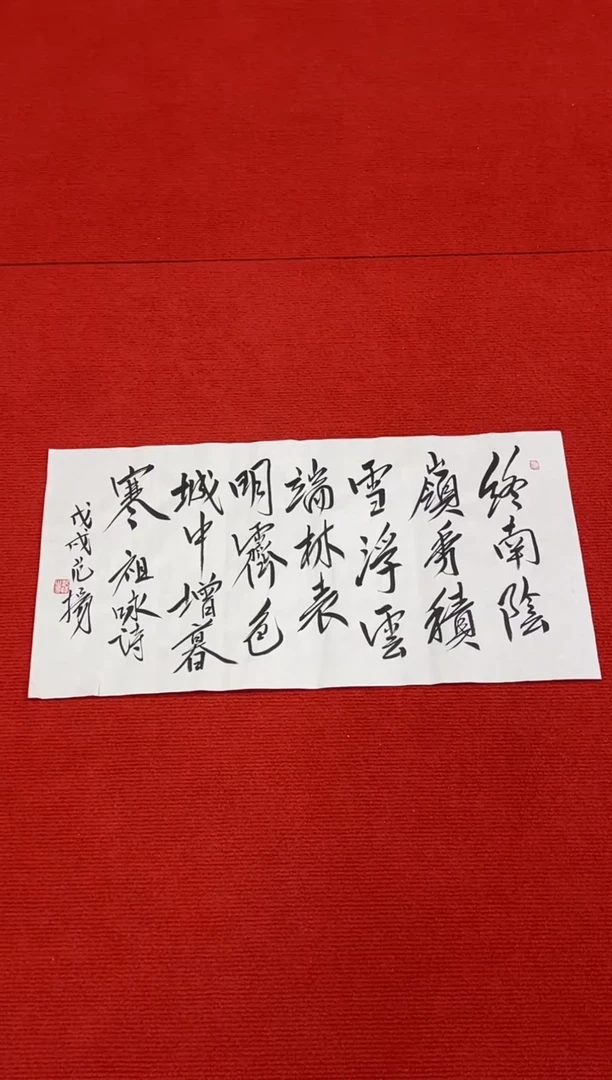 終南陰
嶺秀積
雪浮雲
端林表
明霽色
城中增暮
寒 祖咏诗
戊戌范揚